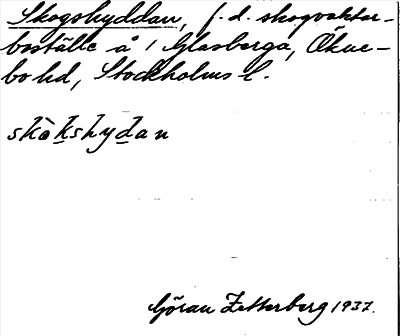 Skogshyddan, f. d. skogvaktar-
boställe å 1 Glasberga, Öкne-
bo hd, Stockholms l.
skòkshydan
Göran Zetterberg 1937.